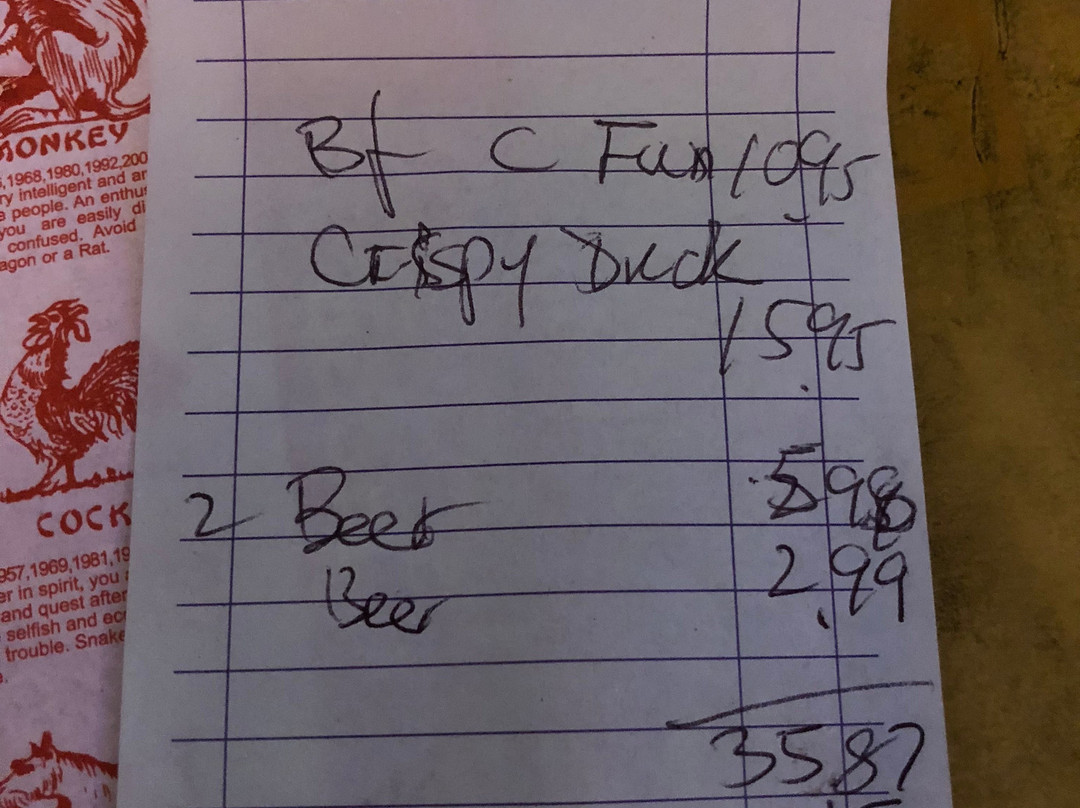 MONKEY
,1968,1980,1992,200
ry intelligent and ar
e people. An enthus
you are easily di
confused. Avoid
agon or a Rat.
COCK
957,1969,1981,19
er in spirit, you
and quest after
selfish and ecc
trouble. Snake
Bf C Fun 10.95
Crispy Duck
15.95
2 Beer 5.98
Beer 2.99
35.87